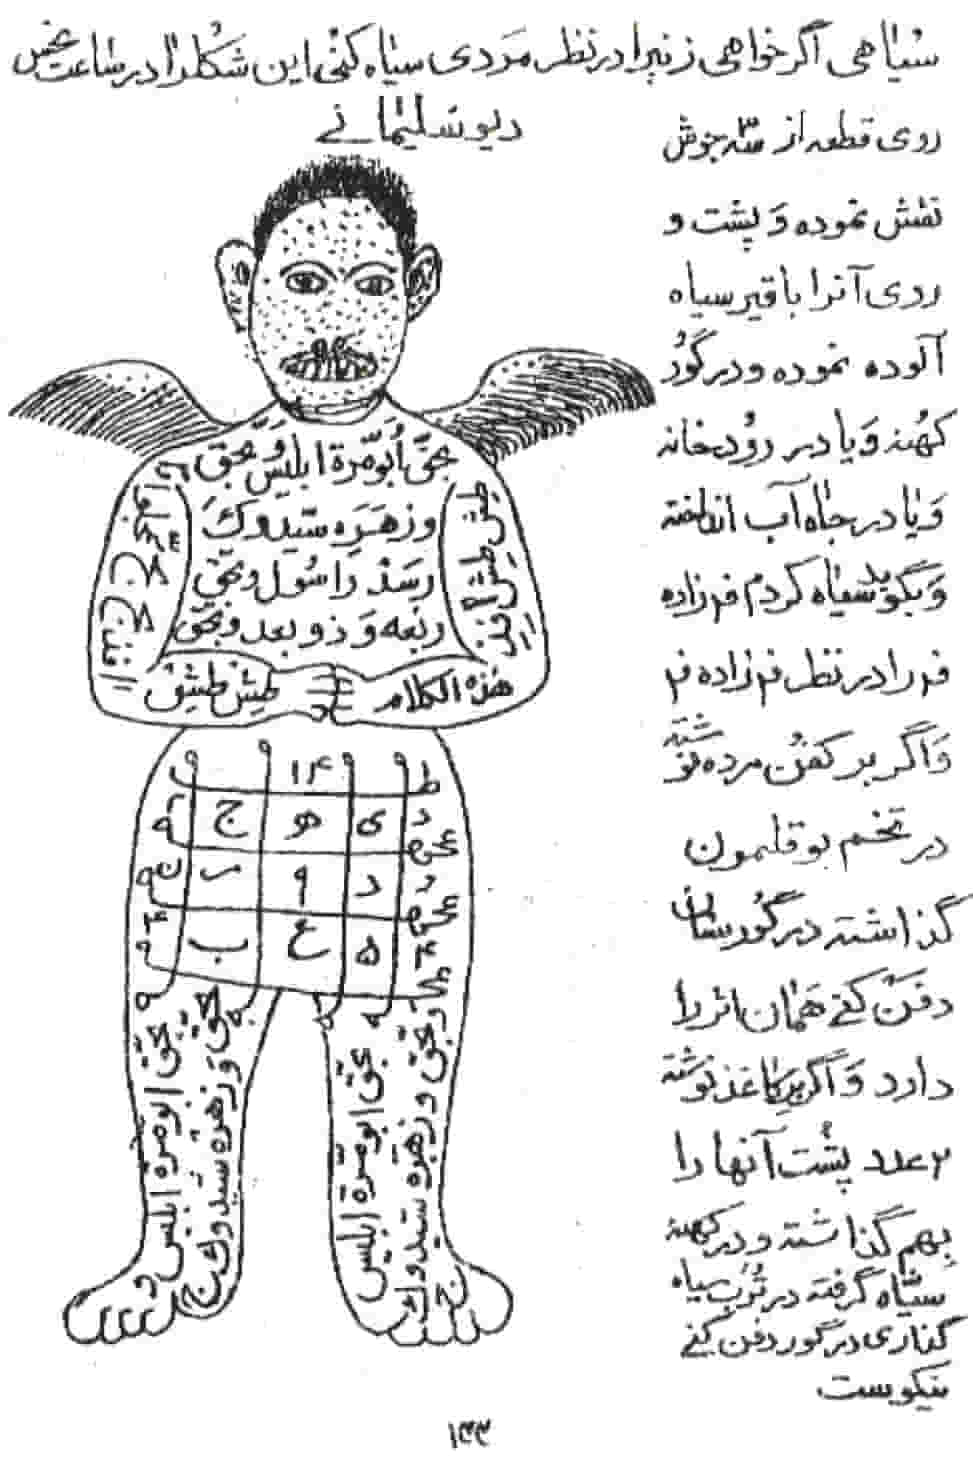 سیاهی اگر خواهی زنیرا در نظر مردی سیاه کنی این شکلرا در ساعت نحس
دیو سلیمانے
روی قطعه از سه جوش
نقش نموده وَ پشت و
روی آنرا با قیر سیاه
آلوده نموده و در گوُر
کهُنه وَ یا در روُدخانه
وَ یا در چاه آب انداخته
وَ بگوید سیاه کردم فم زاده
فم را در نظر فم زاده فم
وَ اگر بر کفن مرده نوشته
در تخم بوقلمون
گذاشته در گوُرستان
دفن کنے همان اثر را
دارد وَ اگر بر کاغذ نوشته
۲ عدد پشت آنها را
بهم گذاشته و در کهنه
سیاه گرفته در ترُب سیاه
گذاری در گور دفن کنے
نیکوست
بحقِّ اَبومرّة ابلیس وَ بحق
و زهَرَه سیّدوك
رسد را سُول و بحق
ربعه وَ ذوبعد و بحق
هذه الکلام
طیش طیش
۱۴
ط
ج هو ی د
ر و د
ب ع ه
بحق ابومرّة ابلیس
بحق وَ زهره سیدوك
بحق ابومرّة ابلیس
وَ بحق و زهره سیدوك
۱۳۳